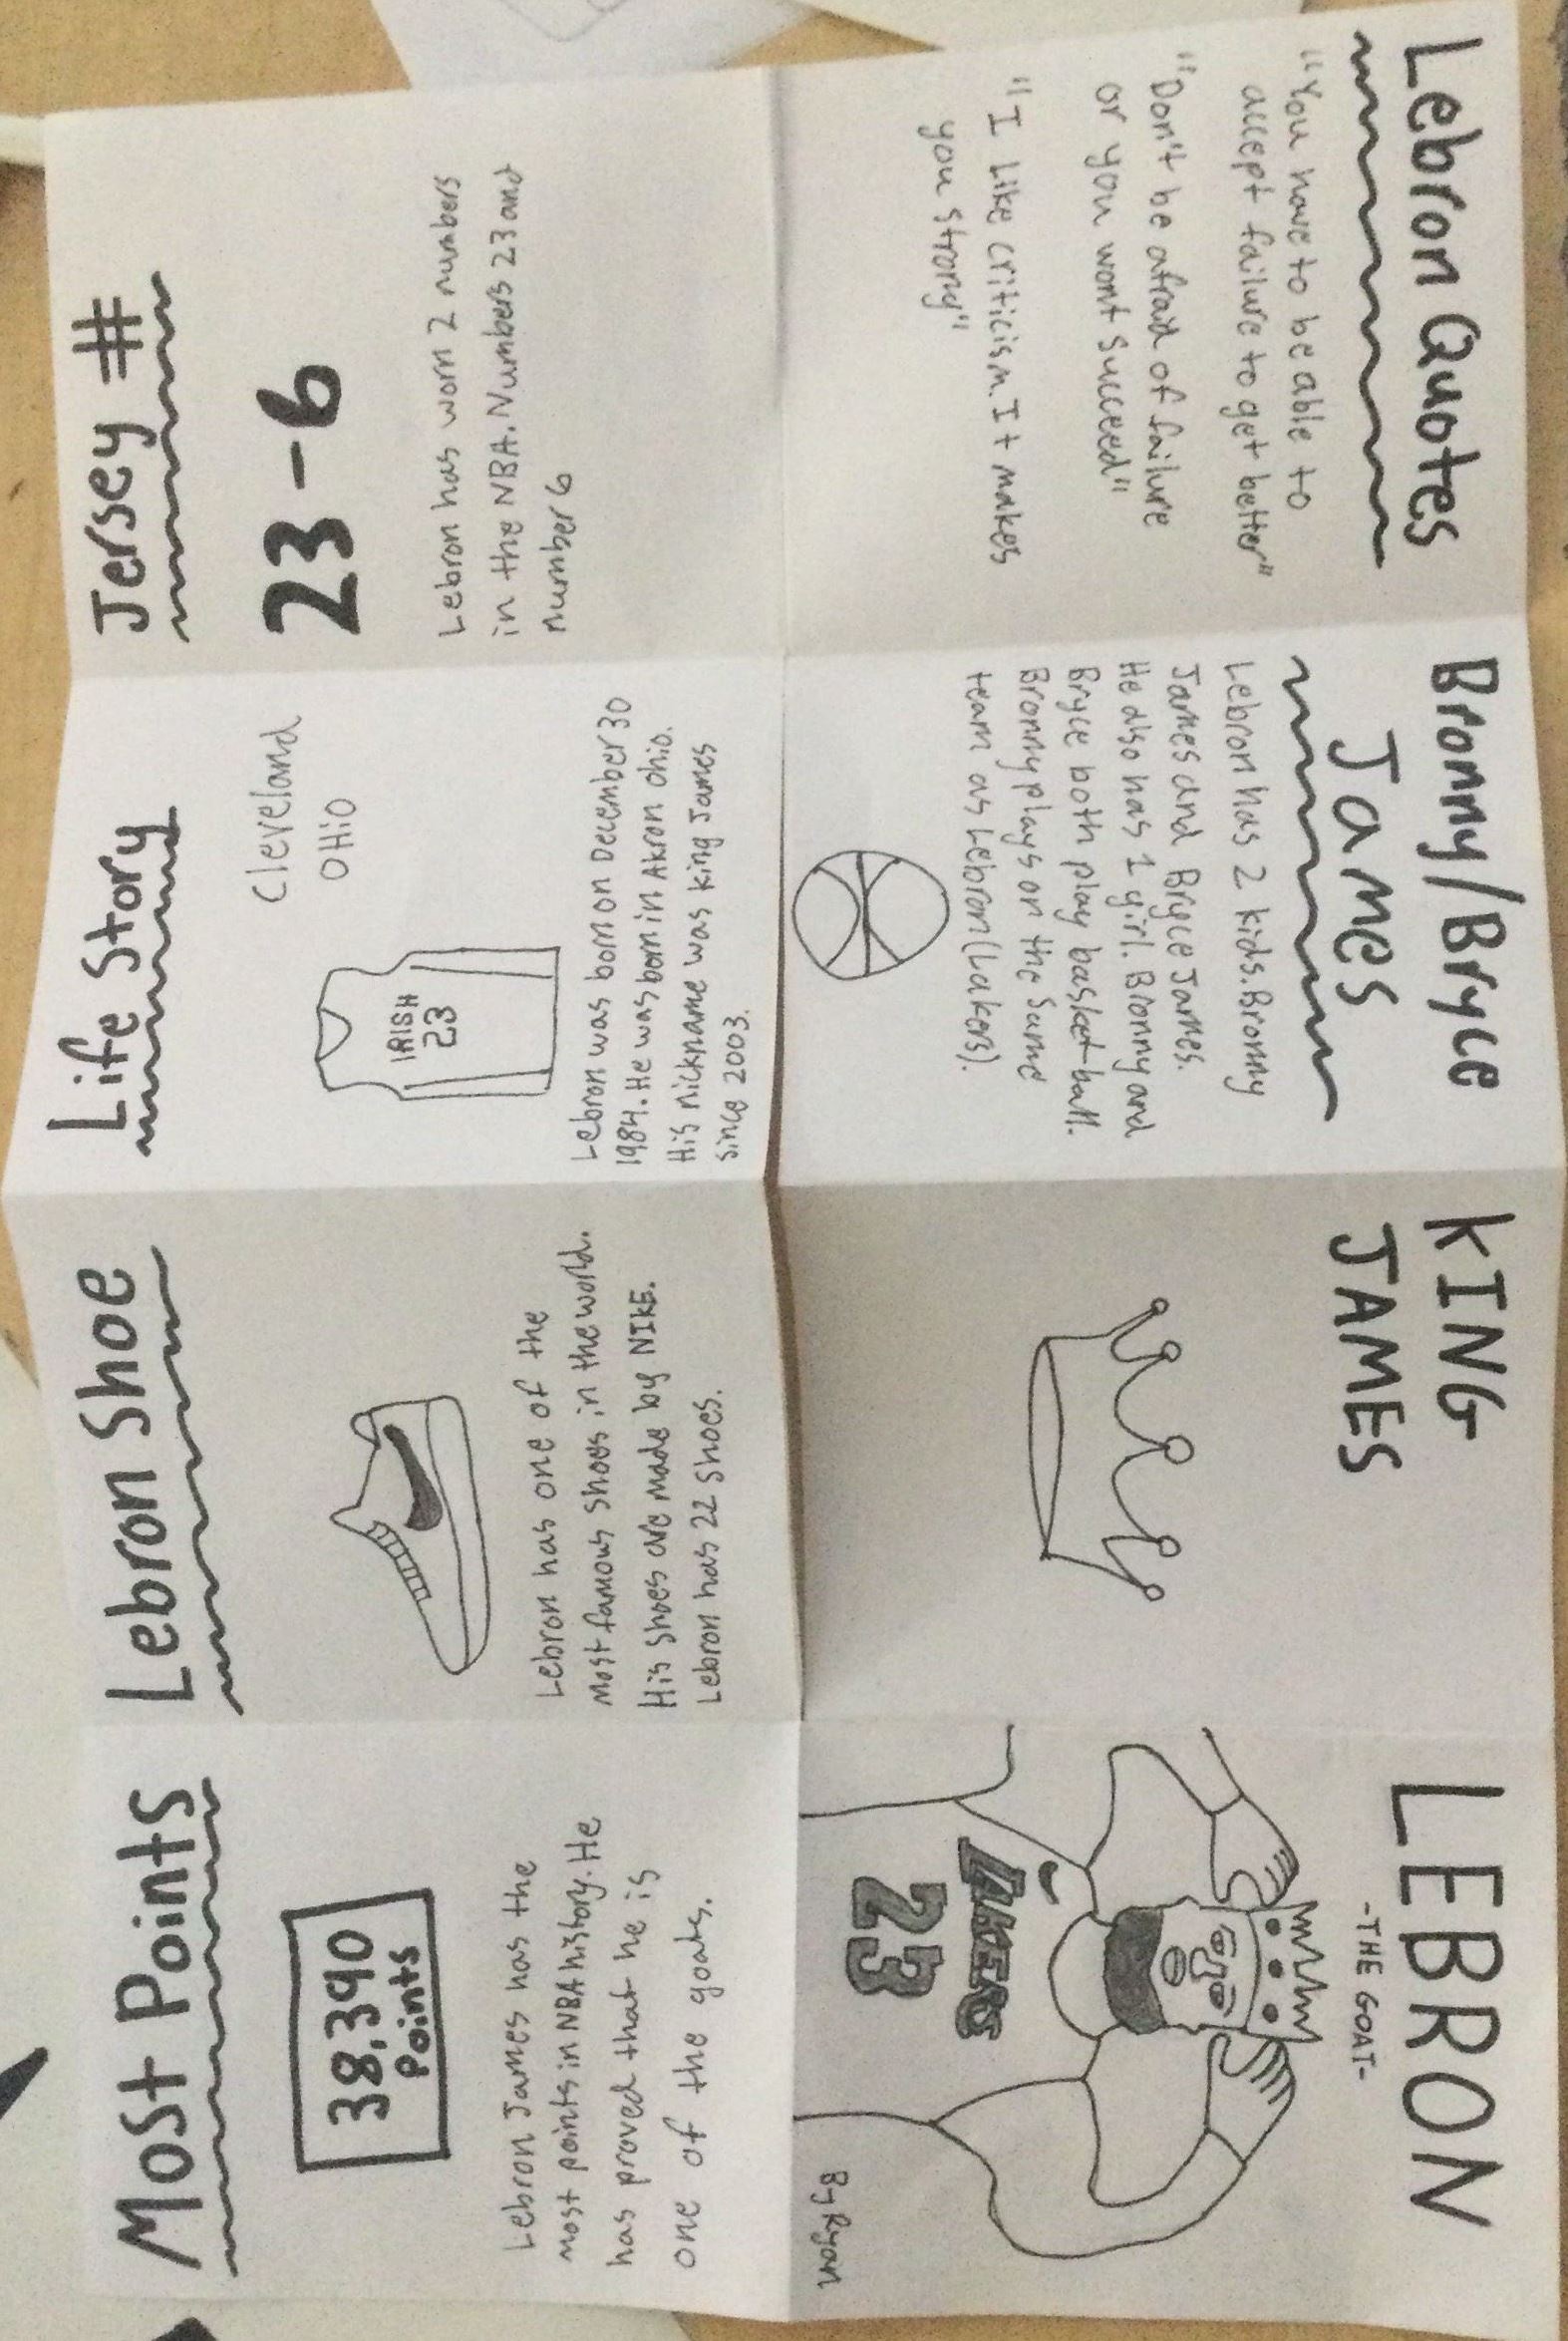 LEBRON
-THE GOAT-
LAKERS
23
By Ryan
Most Points
38,390
Points
Lebron James has the
most points in NBA history. He
has proved that he is
one of the goats.
Lebron Shoe
Lebron has one of the
most famous shoes in the world.
His shoes are made by NIKE.
Lebron has 22 shoes.
Life Story
Cleveland
OHiO
IRISH
23
Lebron was born on December 30
1984. He was born in Akron ohio.
His nickname was king James
since 2003.
Jersey #
23-6
Lebron has worn 2 numbers
in the NBA. Numbers 23 and
number 6
Lebron Quotes
"You have to be able to
accept failure to get better"
"Don't be afraid of failure
or you wont succeed"
"I like criticism. It makes
you strong"
Bronny/Bryce
James
Lebron has 2 kids. Bronny
James and Bryce James.
He also has 1 girl. Bronny and
Bryce both play basketball.
Bronny plays on the same
team as Lebron (Lakers).
KING
JAMES